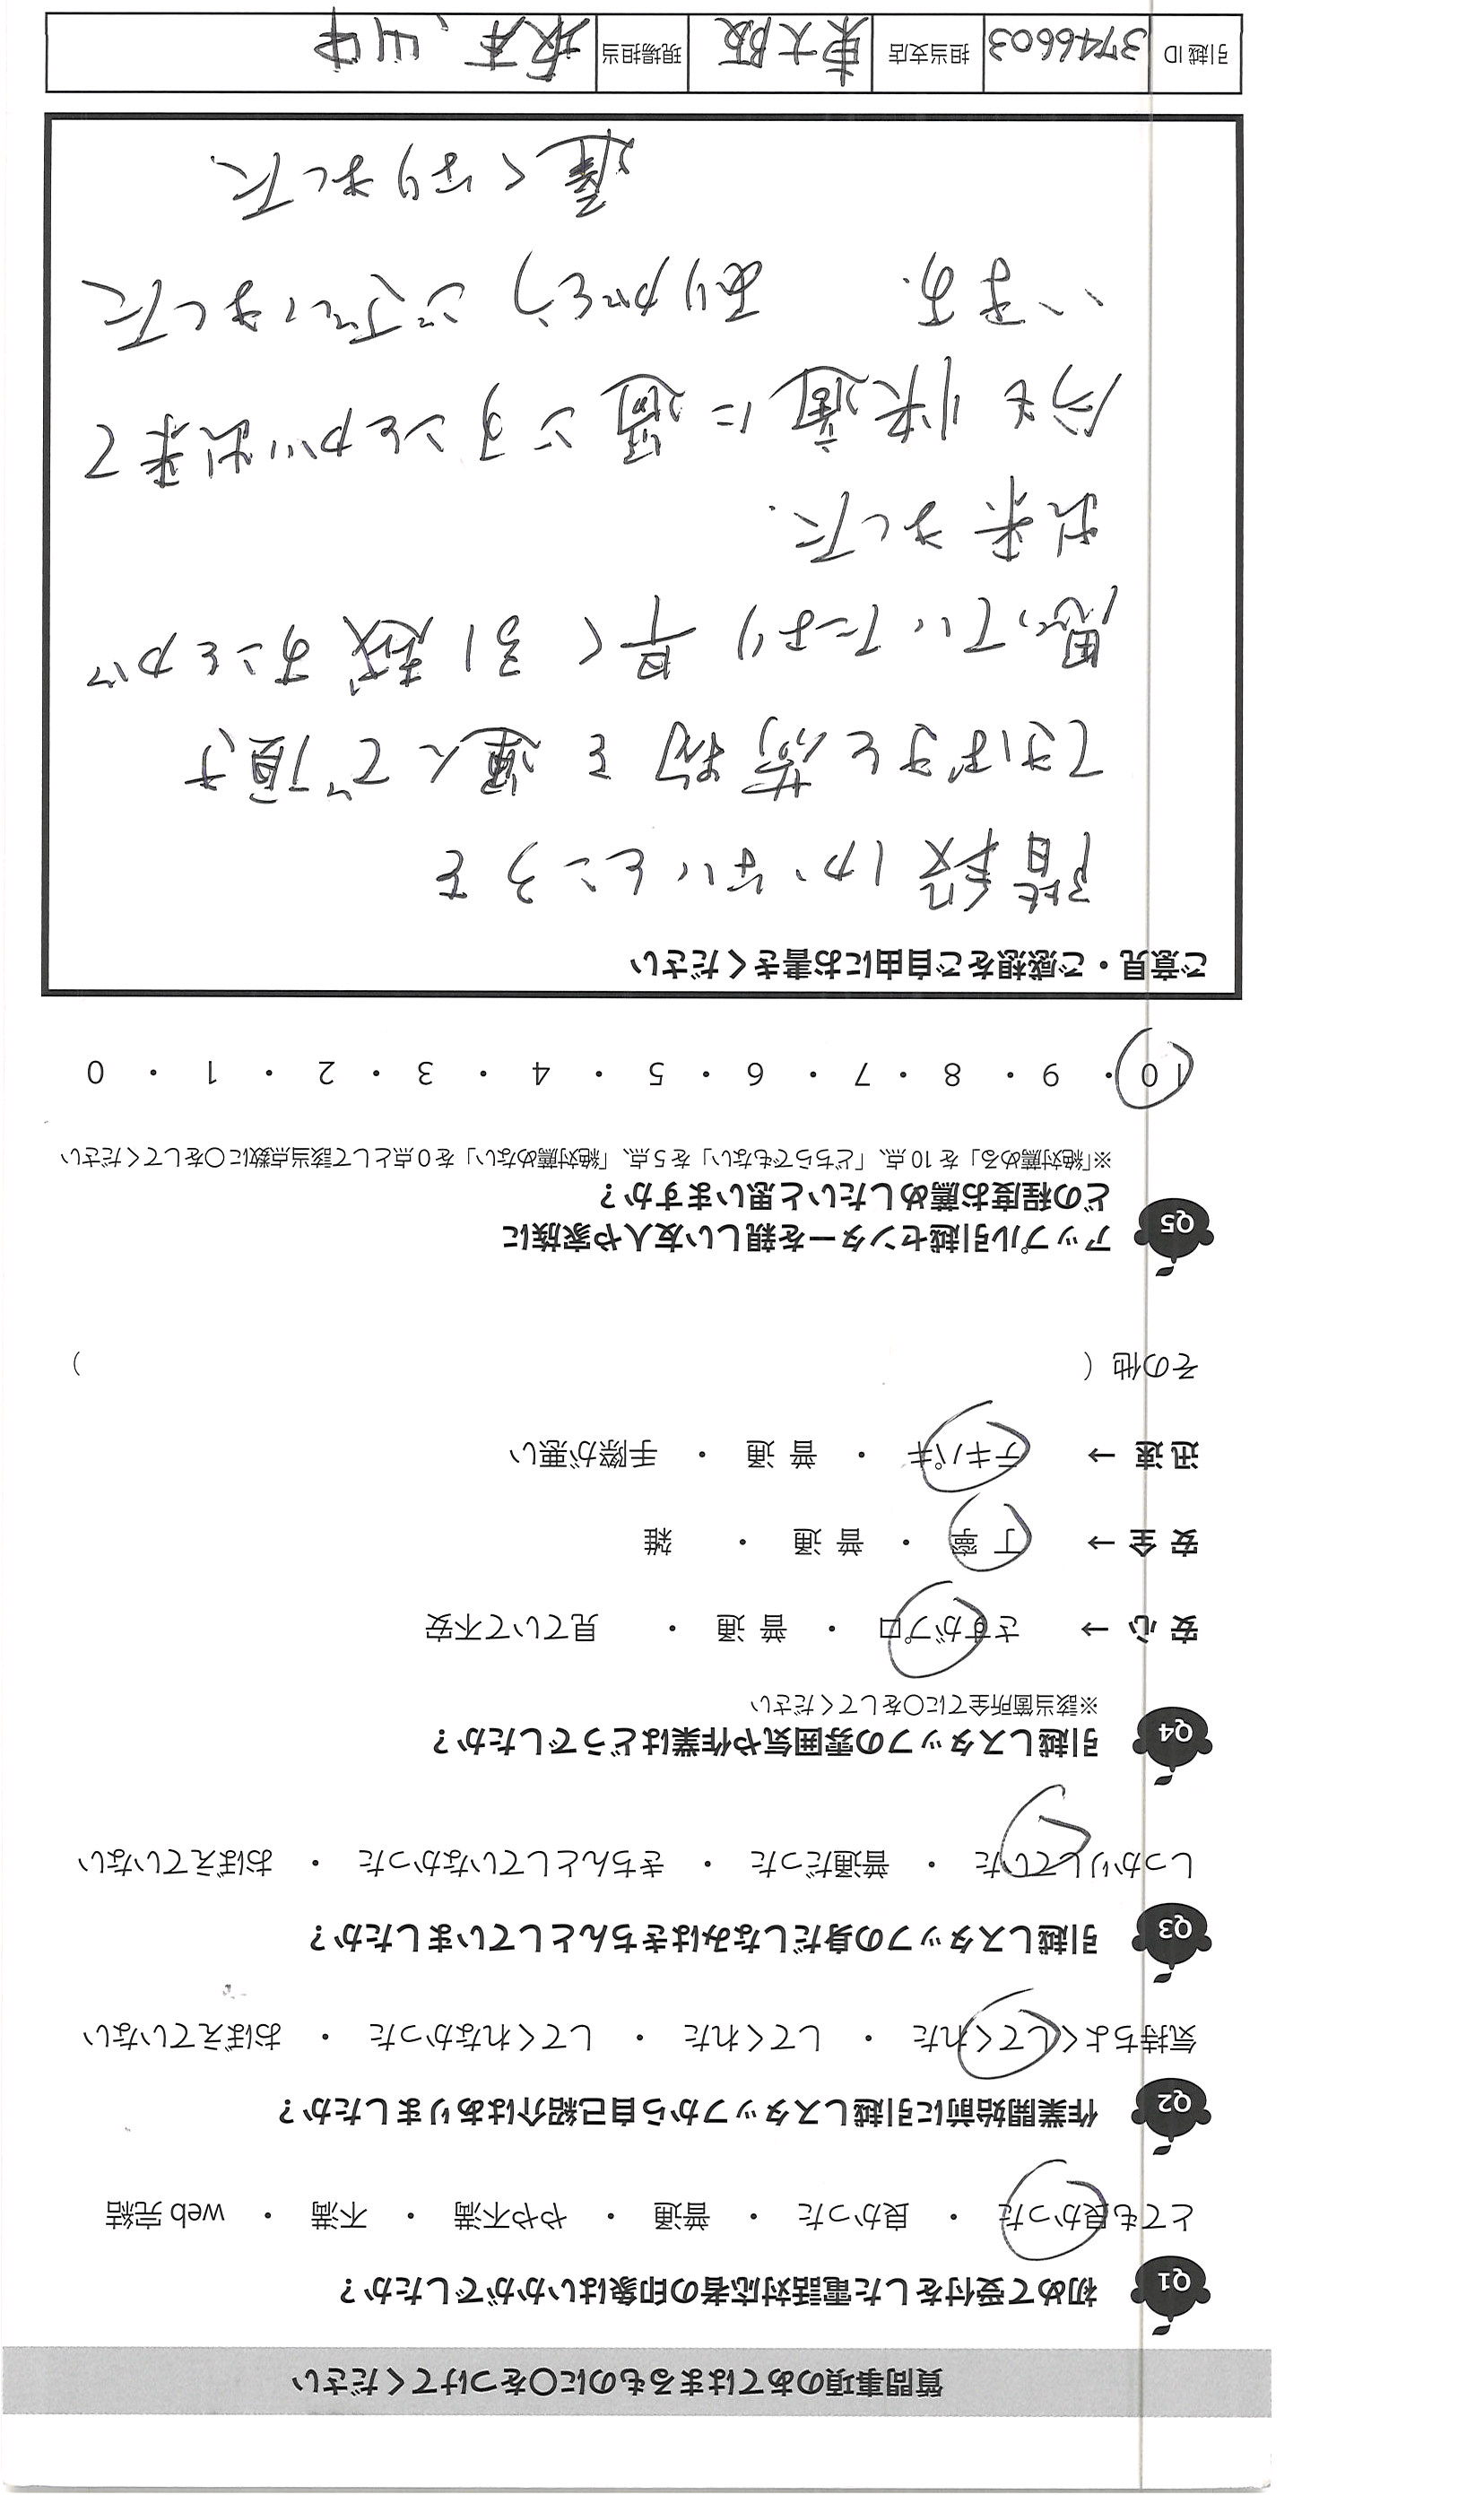 質問事項のあてはまるものに〇をつけてください
Q1 初めて受付をした電話対応者の印象はいかがでしたか？
とても良かった ・ 良かった ・ 普通 ・ やや不満 ・ 不満 ・ web 完結
Q2 作業開始前に引越しスタッフから自己紹介はありましたか？
気持ちよくしてくれた ・ してくれた ・ してくれなかった ・ おぼえていない
Q3 引越しスタッフの身だしなみはきちんとしていましたか？
しっかりしていた ・ 普通だった ・ きちんとしていなかった ・ おぼえていない
Q4 引越しスタッフの雰囲気や作業はどうでしたか？
※該当箇所全てに〇をしてください
安 心 → さすがプロ ・ 普 通 ・ 見ていて不安
安 全 → 丁 寧 ・ 普 通 ・ 雑
迅 速 → テキパキ ・ 普 通 ・ 手際が悪い
その他（ ）
Q5 アップル引越センターを親しい友人や家族に
どの程度お薦めしたいと思いますか？
※「絶対薦める」を 10 点、「どちらでもない」を 5 点、「絶対薦めない」を 0 点として該当点数に〇をしてください
10 ・ 9 ・ 8 ・ 7 ・ 6 ・ 5 ・ 4 ・ 3 ・ 2 ・ 1 ・ 0
ご意見・ご感想をご自由にお書きください
階段しかないところを
てきぱきと荷物を運んで頂き
思っていたより早く引越すことが
出来ました.
今も快適に過ごすことが出来て
います. ありがとうございました
遅くなりました.
引越 ID 3746603 担当支店 東大阪 現場担当 坂本、山中